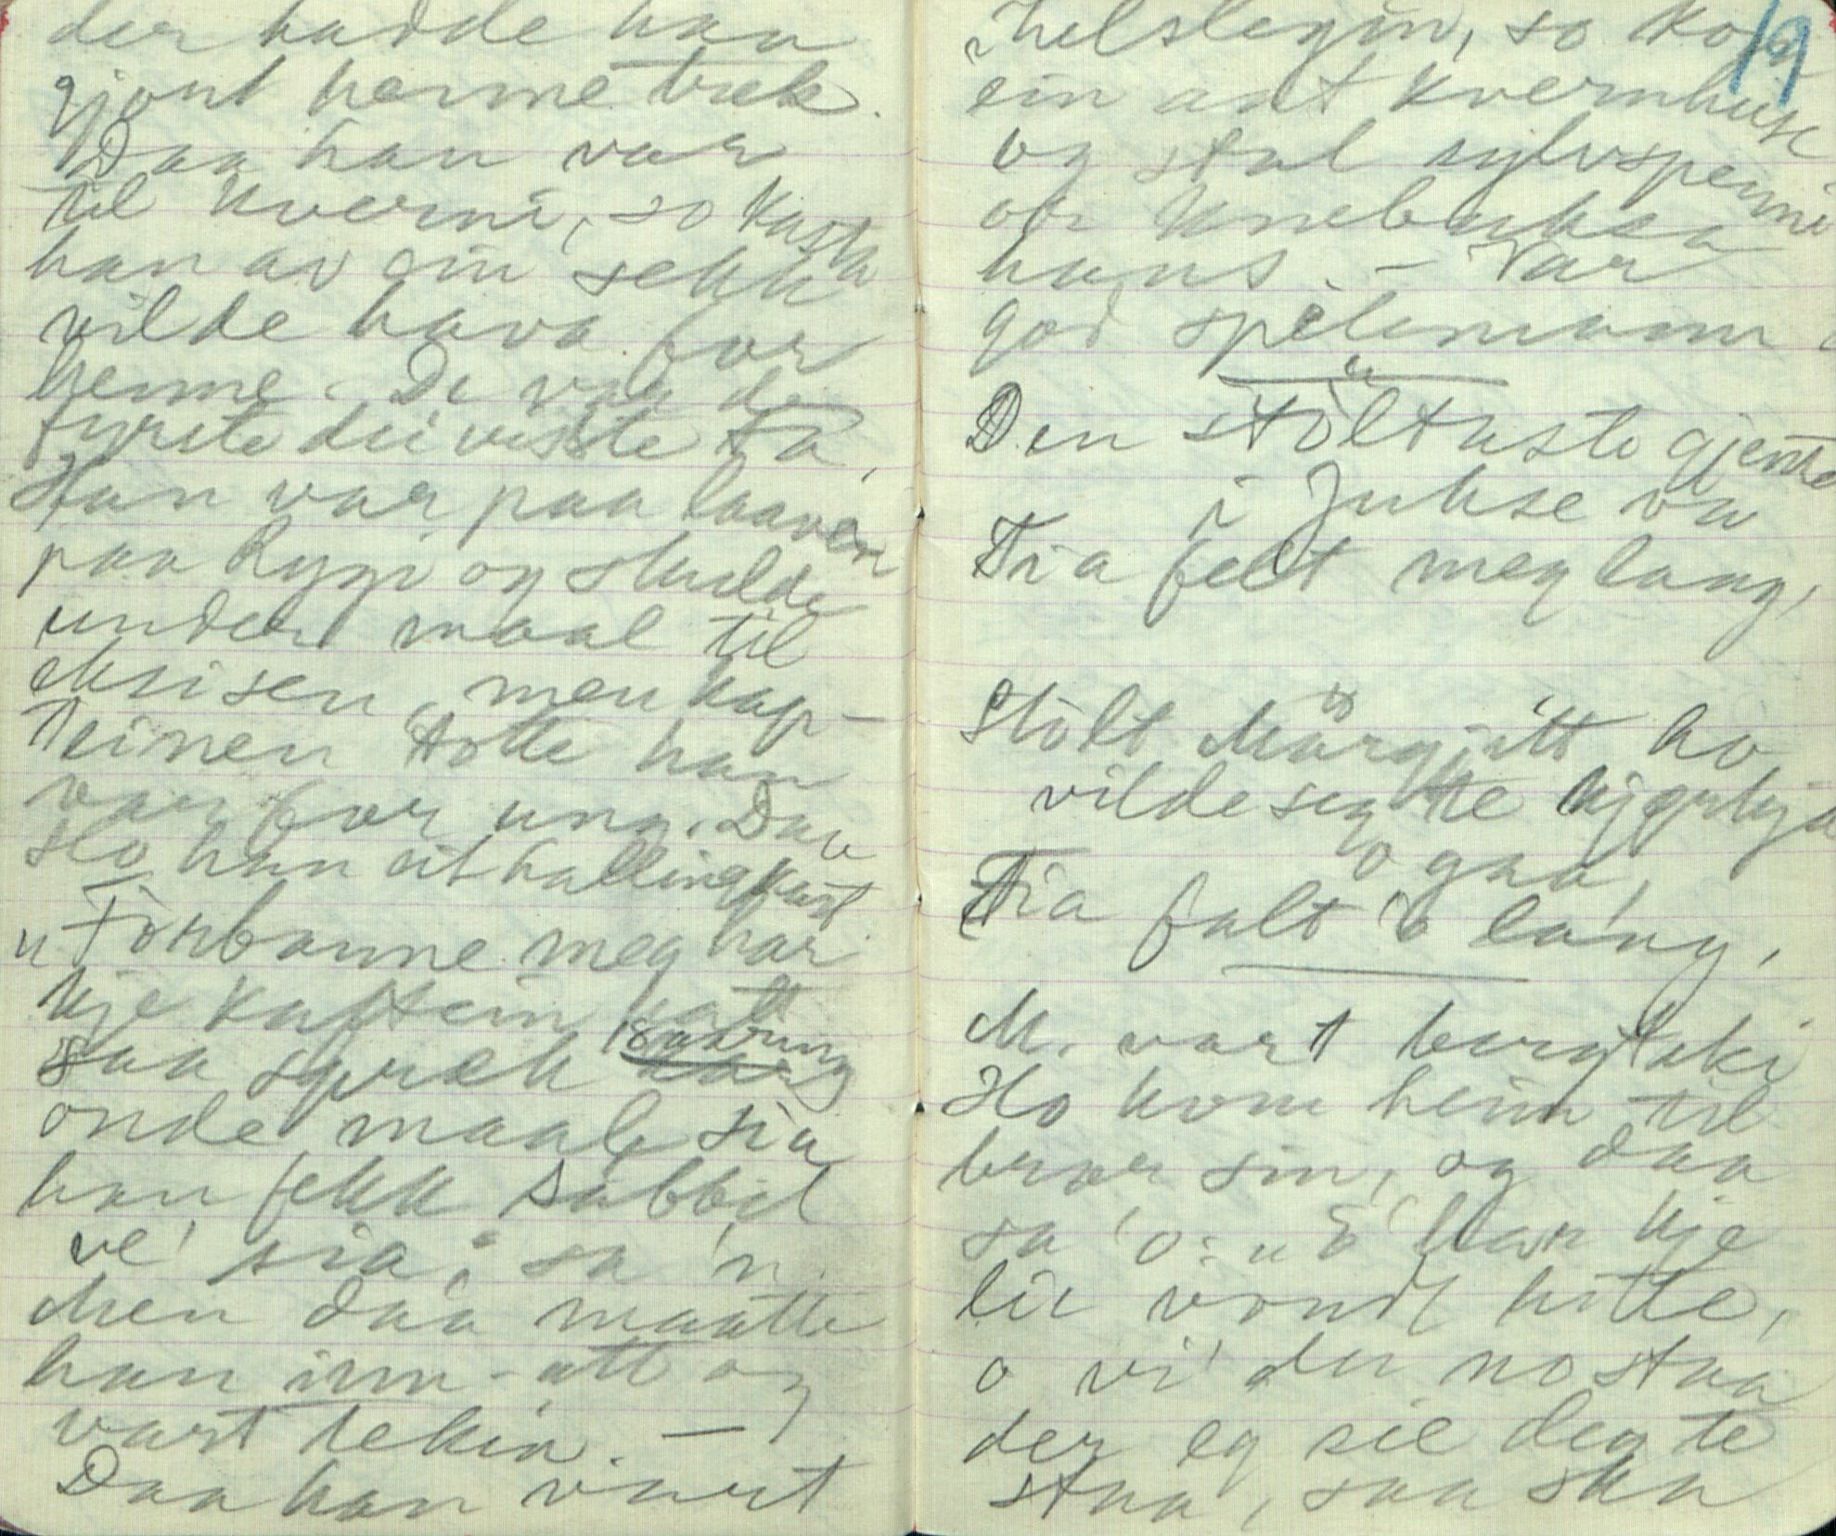 der hadde han
gjort henne trek.
Daa han var
til kverni, so kasta
han av ein sekk
vilde hava for
henne. De var de
fyrste dei visste ta,
Han var paa laaven
paa Rygi og skulde
under maal til
eksisen, men kap-
teinen totte han
var for ung. Daa
slo han eit hallingkast
"Forbanne meg har
kje kaptein hatt
saa sprek 18aaring
onde maale sia
han fekk sabbel
ve' sia", sa 'n.
Men daa maatte
han inn-att og
vart tekin. —
Daa han vart
ihelslegin, so kom
19
ein at kvernhuse
og stal sylvspenni
or knebuksa
hans. — Var
god spelemann
Den stoltaste gjenta
i Jukse va
Tia felt meg lang,
Stolt Margjitt ho
vilde seg te kjyrkja
o gaa,
Tia falt 'o lang.
M. vart bergteki
Ho kom heim til
bror sin, og daa
sa 'o: "E har kje
lie vondt hitte,
o vi' du no staa
der eg sie deg te
staa, saa ska